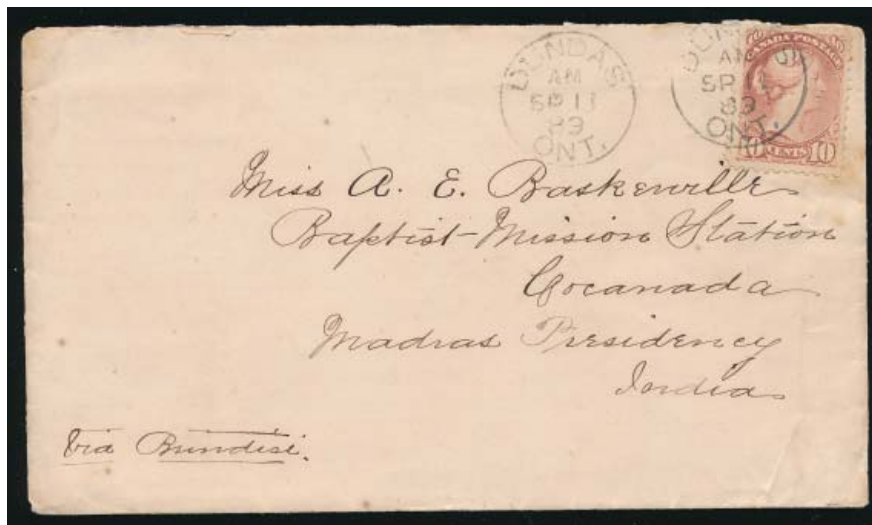 DUNDAS
AM
SP 11
89
ONT.
AM
SP
89
ONT.
CANADA POSTAGE
10 CENTS 10
Miss A. E. Baskerville
Baptist Mission Station
Cocanada
Madras Presidency
India
Via Brindisi.